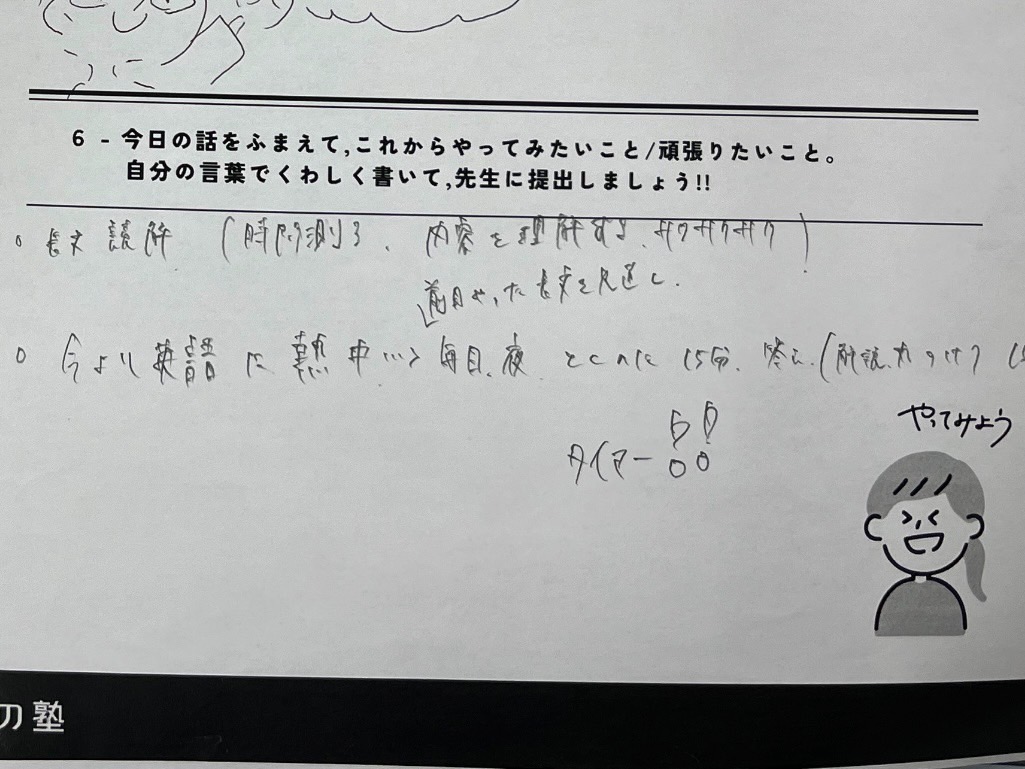 6 - 今日の話をふまえて,これからやってみたいこと/頑張りたいこと。
自分の言葉でくわしく書いて,先生に提出しましょう!!
○ 長文読解 (時間測る、内容を理解する、サクサクサク)
前日やった長文を見直し.
○ 今より英語に熱中 毎日、夜 15分、答え、(解説
タイマー!!
やってみよう
の塾